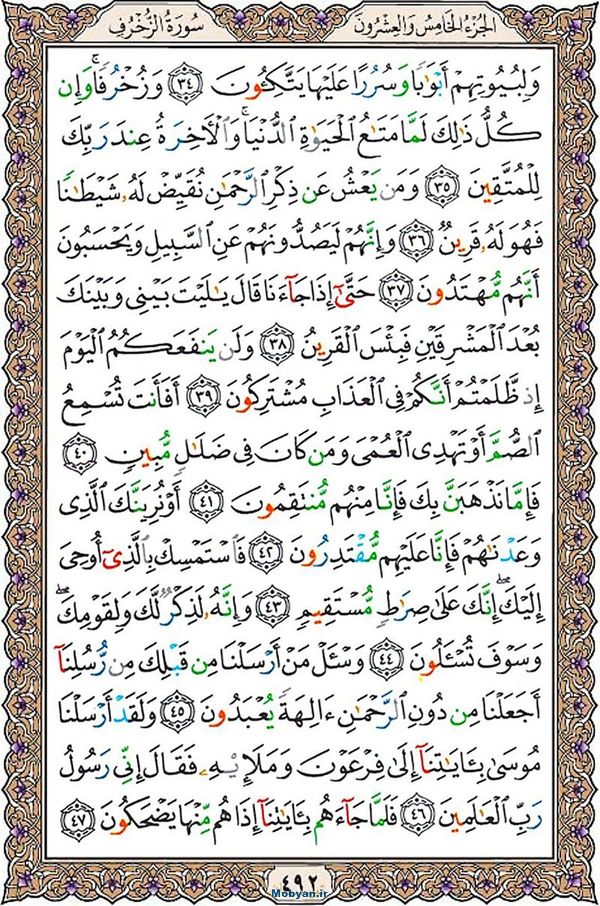 الجزء الخامس والعشرون سورة الزخرف
وَلِبُيُوتِهِمْ أَبْوَٰبًا وَسُرُرًا عَلَيْهَا يَتَّكِـُٔونَ ٣٤ وَزُخْرُفًا ۚ وَإِن
كُلُّ ذَٰلِكَ لَمَّا مَتَٰعُ الْحَيَوٰةِ الدُّنْيَا ۚ وَالْءَاخِرَةُ عِندَ رَبِّكَ
لِلْمُتَّقِينَ ٣٥ وَمَن يَعْشُ عَن ذِكْرِ الرَّحْمَٰنِ نُقَيِّضْ لَهُۥ شَيْطَٰنًا
فَهُوَ لَهُۥ قَرِينٌ ٣٦ وَإِنَّهُمْ لَيَصُدُّونَهُمْ عَنِ السَّبِيلِ وَيَحْسَبُونَ
أَنَّهُم مُّهْتَدُونَ ٣٧ حَتَّىٰٓ إِذَا جَآءَنَا قَالَ يَٰلَيْتَ بَيْنِي وَبَيْنَكَ
بُعْدَ الْمَشْرِقَيْنِ فَبِئْسَ الْقَرِينُ ٣٨ وَلَن يَنفَعَكُمُ الْيَوْمَ
إِذ ظَّلَمْتُمْ أَنَّكُمْ فِي الْعَذَابِ مُشْتَرِكُونَ ٣٩ أَفَأَنتَ تُسْمِعُ
الصُّمَّ أَوْ تَهْدِي الْعُمْيَ وَمَن كَانَ فِي ضَلَٰلٍ مُّبِينٍ ٤٠
فَإِمَّا نَذْهَبَنَّ بِكَ فَإِنَّا مِنْهُم مُّنتَقِمُونَ ٤١ أَوْ نُرِيَنَّكَ الَّذِي
وَعَدْنَٰهُمْ فَإِنَّا عَلَيْهِم مُّقْتَدِرُونَ ٤٢ فَاسْتَمْسِكْ بِالَّذِيٓ أُوحِيَ
إِلَيْكَ ۖ إِنَّكَ عَلَىٰ صِرَٰطٍ مُّسْتَقِيمٍ ٤٣ وَإِنَّهُۥ لَذِكْرٌ لَّكَ وَلِقَوْمِكَ ۖ
وَسَوْفَ تُسْـَٔلُونَ ٤٤ وَسْـَٔلْ مَنْ أَرْسَلْنَا مِن قَبْلِكَ مِن رُّسُلِنَآ
أَجَعَلْنَا مِن دُونِ الرَّحْمَٰنِ ءَالِهَةً يُعْبَدُونَ ٤٥ وَلَقَدْ أَرْسَلْنَا
مُوسَىٰ بِـَٔايَٰتِنَآ إِلَىٰ فِرْعَوْنَ وَمَلَإِي۟هِۦ فَقَالَ إِنِّي رَسُولُ
رَبِّ الْعَٰلَمِينَ ٤٦ فَلَمَّا جَآءَهُم بِـَٔايَٰتِنَآ إِذَا هُم مِّنْهَا يَضْحَكُونَ ٤٧
٤٩٢
Mobyan.ir